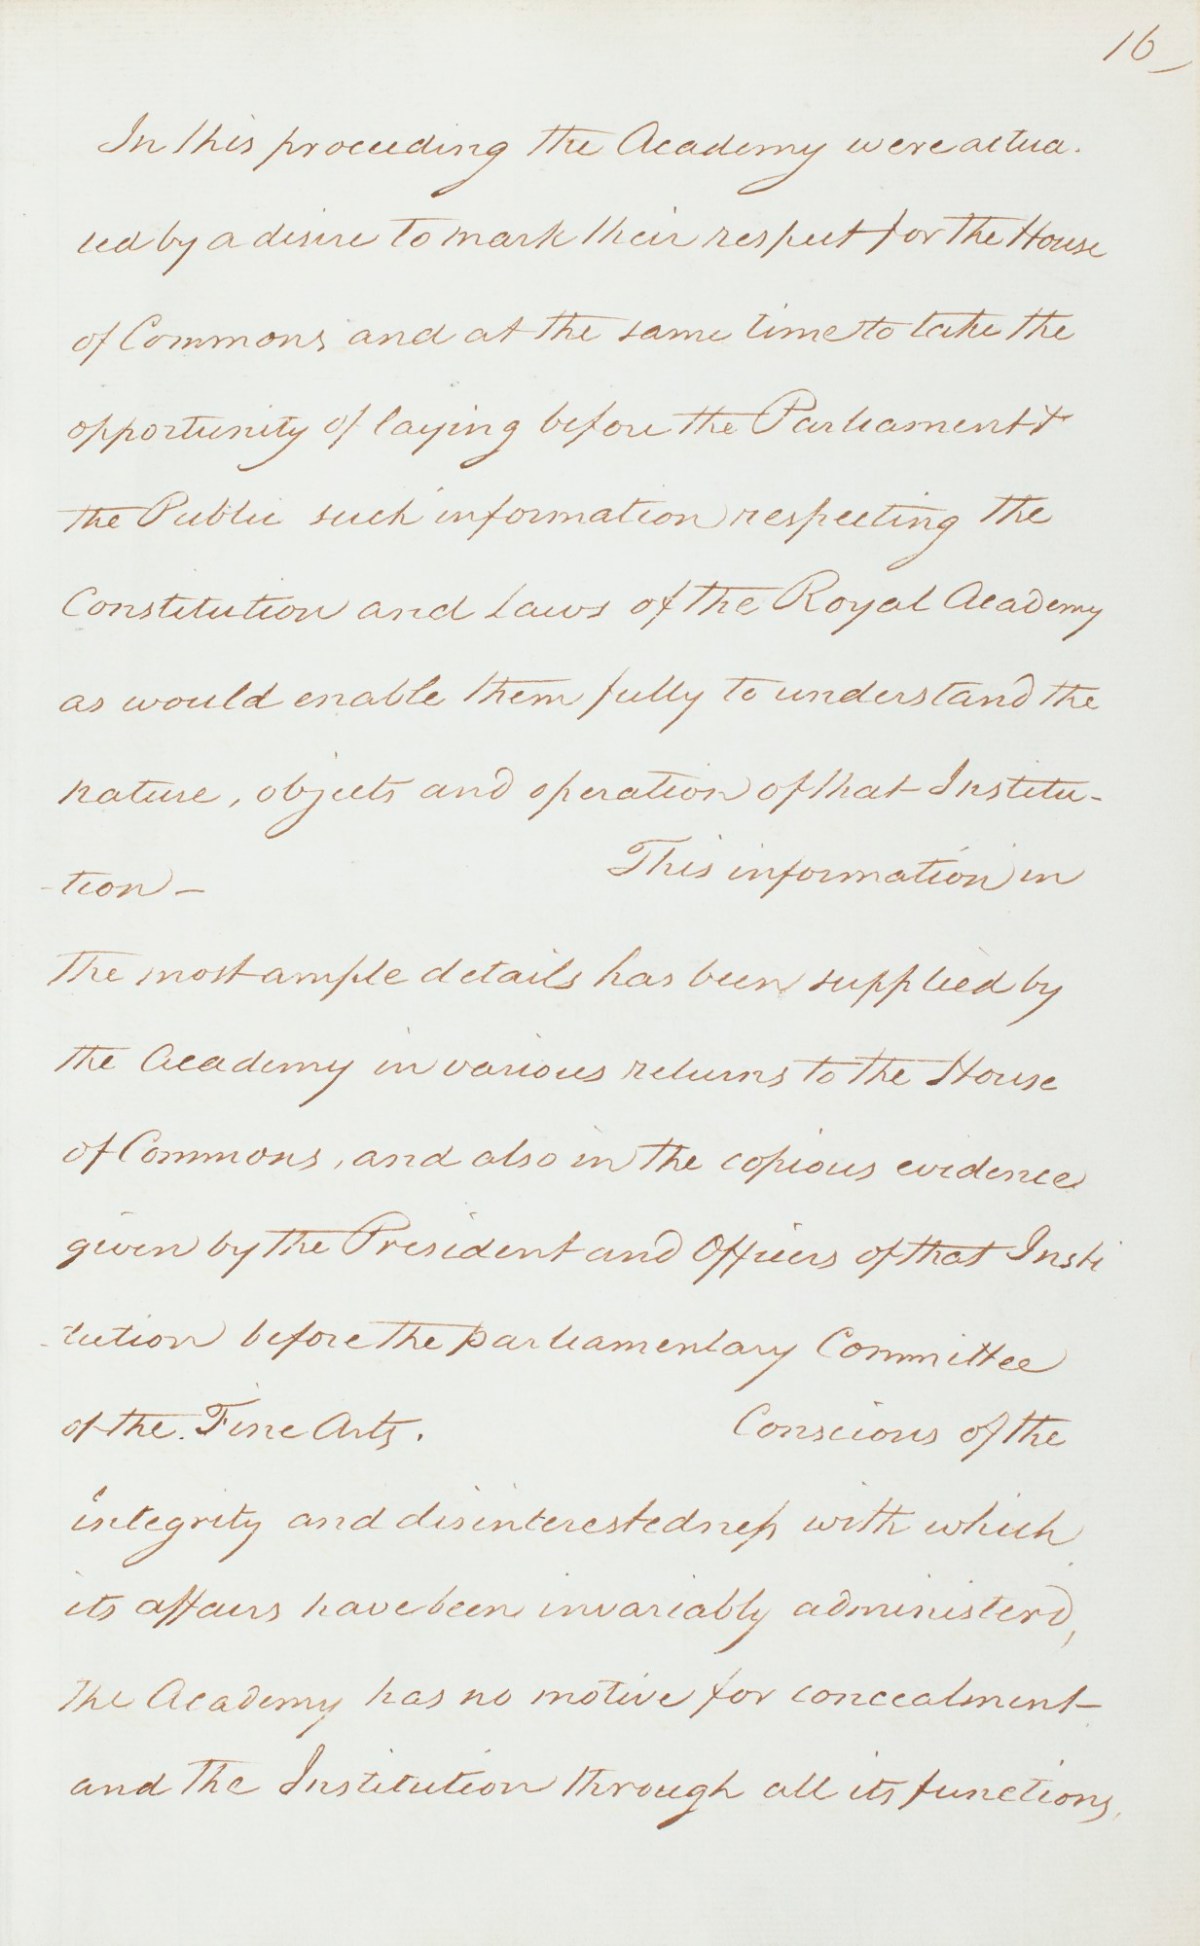 16
In this proceeding the Academy were actua-
ted by a desire to mark their respect for the House
of Commons, and at the same time to take the
opportunity of laying before the Parliament &
the Public such information respecting the
Constitution and Laws of the Royal Academy
as would enable them fully to understand the
nature, objects and operation of that Institu-
-tion – This information in
the most ample details has been supplied by
the Academy in various returns to the House
of Commons, and also in the copious evidence
given by the President and Officers of that Insti
-tution before the parliamentary Committee
of the Fine Arts. Conscious of the
integrity and disinterestedness with which
its affairs have been invariably administerd,
the Academy has no motive for concealment
and the Institution through all its functions,